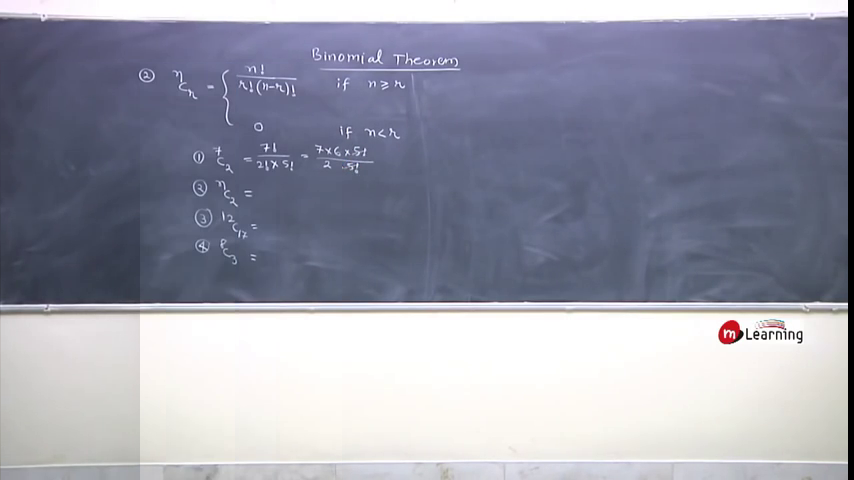 Binomial Theorem
② ⁿCᵣ = { n! / r!(n-r)! if n ≥ r
0 if n < r
① ⁷C₂ = 7! / 2! × 5! = 7 × 6 × 5! / 2 5!
② ⁿC₂ =
③ ¹²C₁₇ =
④ ⁸C₃ =
m Learning